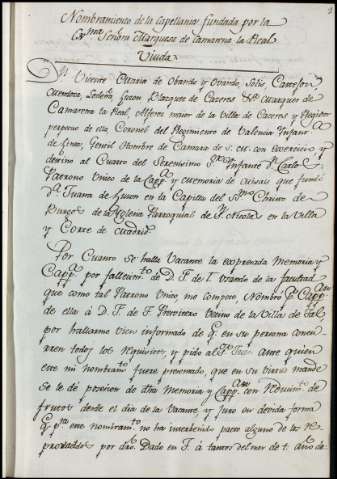 Nombramiento de la Capellania fundada por la
Exma Señora Marquesa de Camarena la Real
Viuda
Dn Vicente Maria de Obando y Ovando, Solis,
de Caceres Marques de
Camarena la Real, Alferez maior de la Villa de Caceres y Regidor
perpetuo de ella, Coronel del Regimiento de Valencia Infanta
de linea, Gentil Hombre de Camara de S. M. con exercicio y
destino al Cuarto del Serenisimo Sr Infante Dn Carlos
Patrono Unico de la Capp.a y memoria de Misas que fundó
Da Juana de en la Capilla del SSmo Christo de
Burgos de la Yglesia Parroquial de Sn Nicolas en la Villa
y Corte de Madrid
Por Cuanto se halla Vacante la expresada Memoria y
Capp.a por fallecimto de D. F. de T. Usando de la facultad
que como tal Patrono Unico, me compete, Nombro pr Cappn
de ella á D. F. de F. Presvitero Vecino de la Villa de Tal
por hallarme vien informado de q. en su persona concu-
rren todos los requisitos, y pido al Sr Juez ante quien
este mi nombramto fuere presentado, que en su virtud mande
se le dé posesion de dha Memoria y Capp.a con de
frutos desde el dia de la Vacante, y Juro en devida forma
q. pa este nombramto no ha intervenido pacto alguno de los re-
provados por dro. Dado en F. á tantos del mes de t. año de